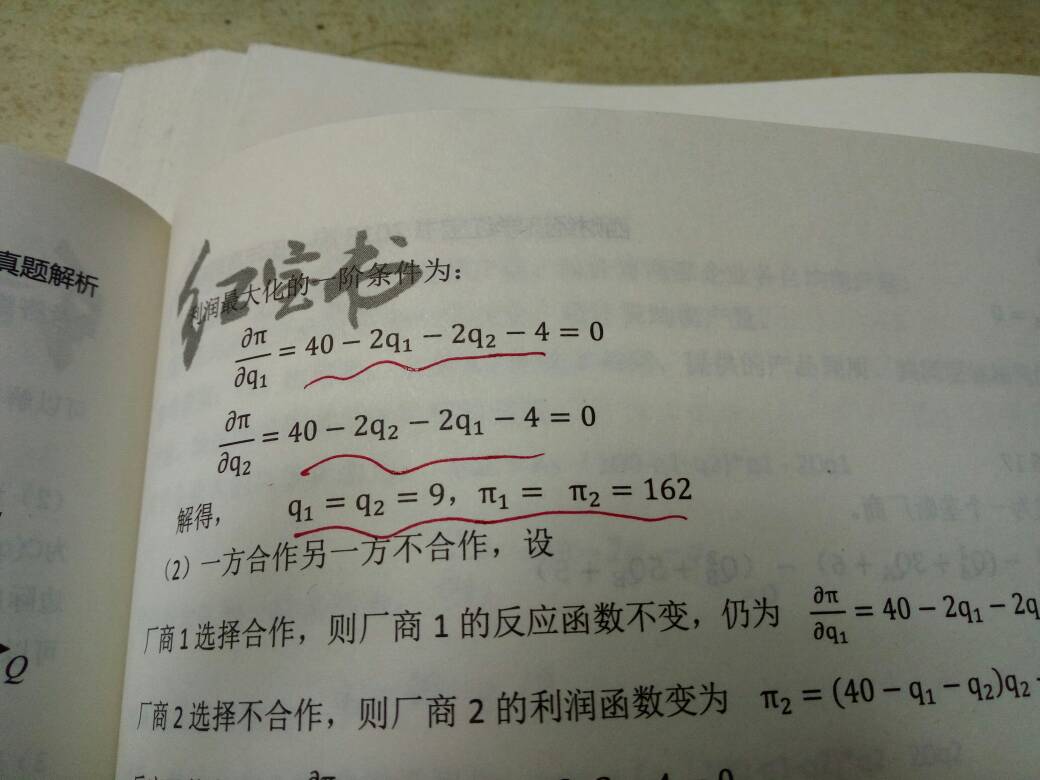 真题解析
红宝书
利润最大化的一阶条件为：
∂π/∂q₁ = 40 − 2q₁ − 2q₂ − 4 = 0
∂π/∂q₂ = 40 − 2q₂ − 2q₁ − 4 = 0
解得， q₁ = q₂ = 9，π₁ = π₂ = 162
（2）一方合作另一方不合作，设
厂商 1 选择合作，则厂商 1 的反应函数不变，仍为 ∂π/∂q₁ = 40 − 2q₁ − 2q
厂商 2 选择不合作，则厂商 2 的利润函数变为 π₂ = (40 − q₁ − q₂)q₂
Q